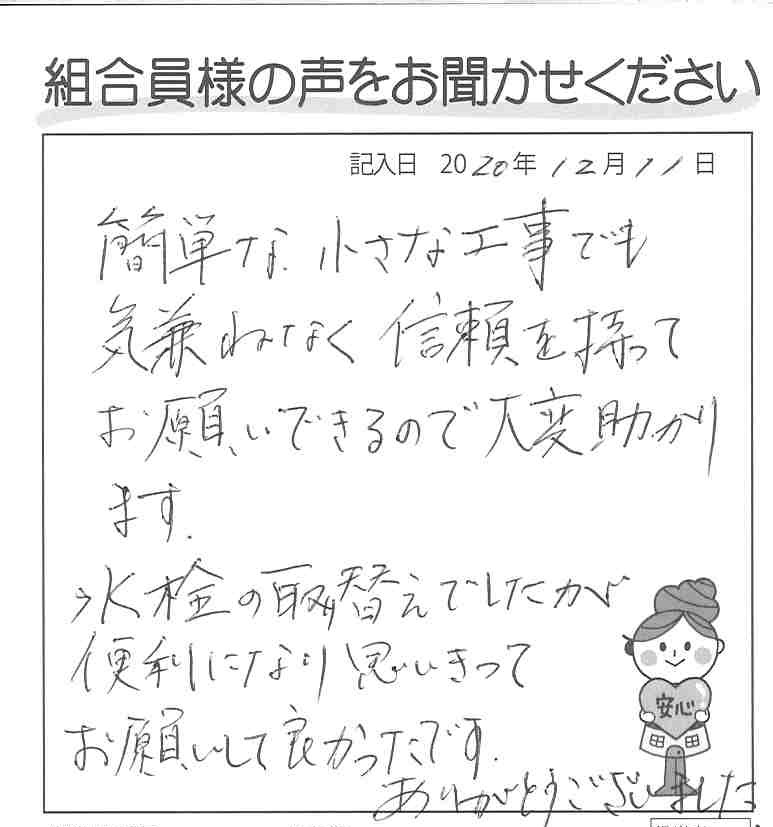 組合員様の声をお聞かせください
記入日 2020年12月11日
簡単な、小さな工事でも
気兼ねなく信頼を持って
お願いできるので大変助かり
ます。
水栓の取替えでしたが
便利になり思いきって
お願いして良かったです。
安心
ありがとうございました